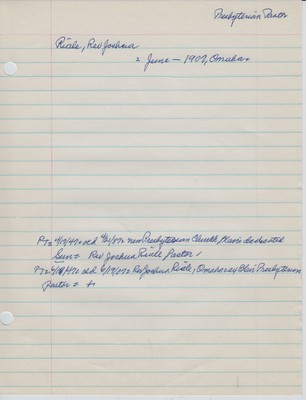 Presbyterian Pastor
Riale, Rev Joshua
2 June - 1907, Omaha.
new Presbyterian Church, Blair dedicated
Sun = Rev Joshua Riale Pastor.
Rev Joshua Riale, Omaha ex Blair Presbyterian
Pastor = +